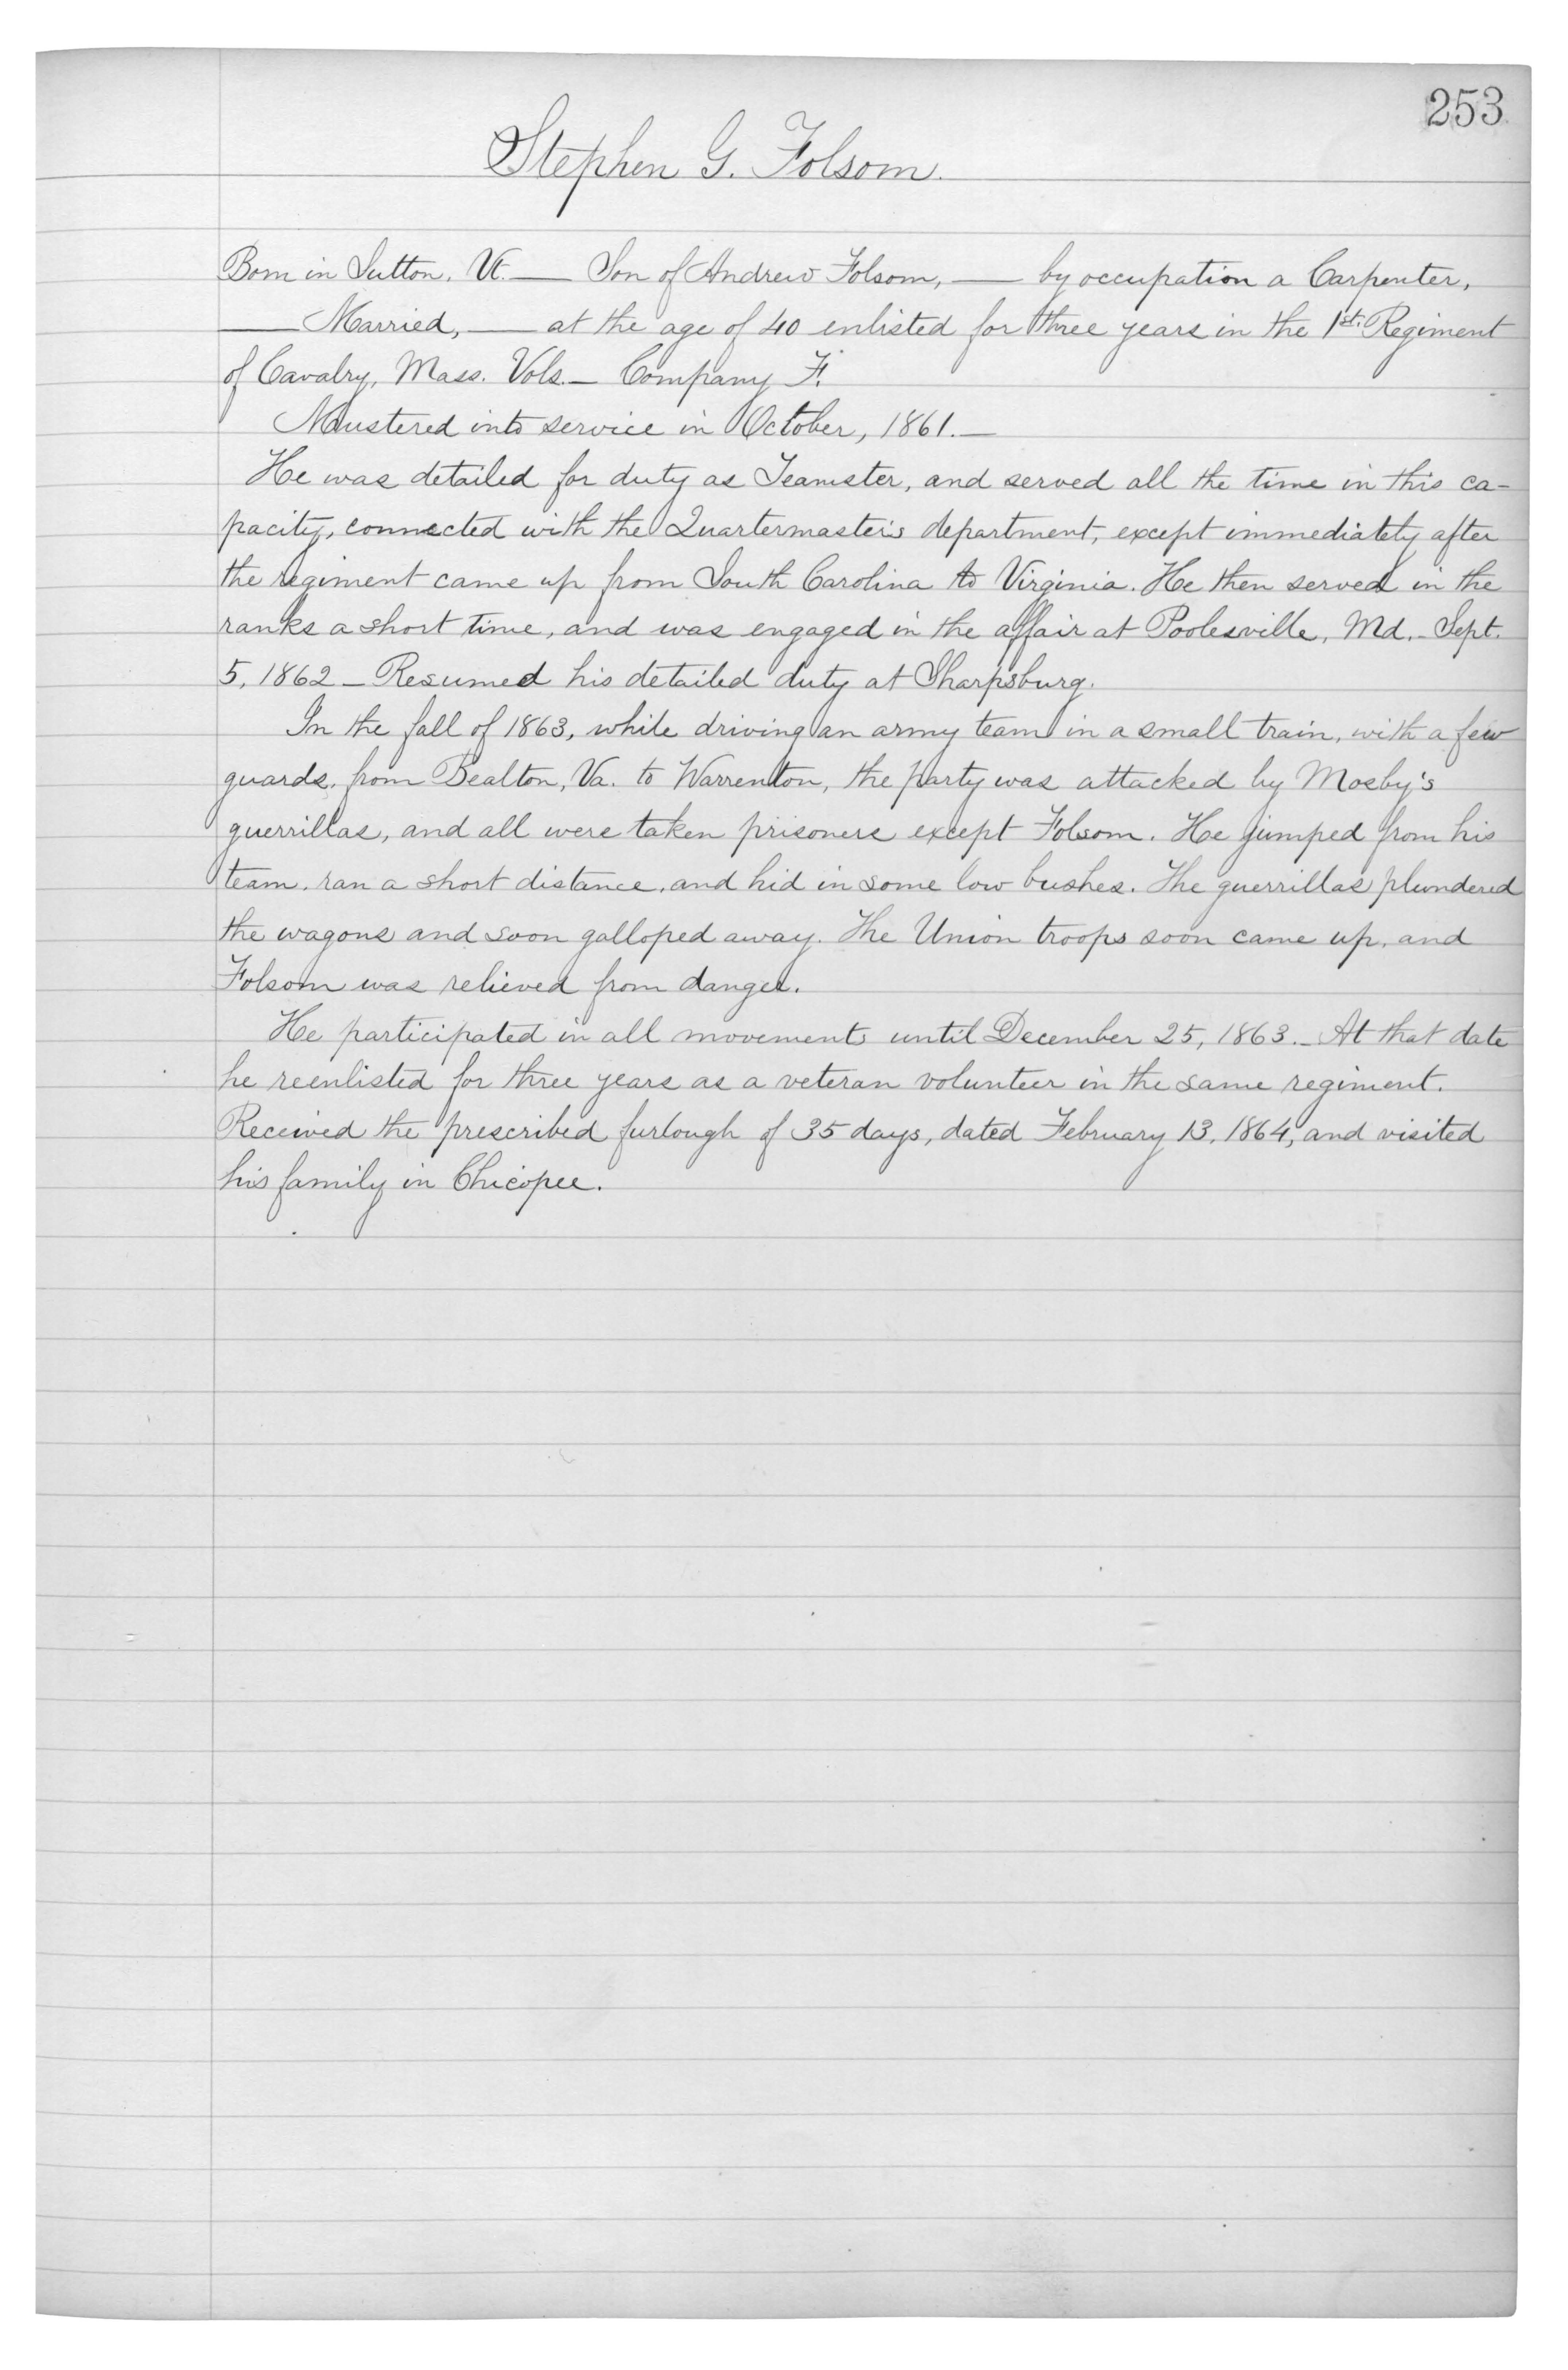 253
Stephen G. Folsom.
Born in Sutton, Vt. — Son of Andrew Folsom, — by occupation a Carpenter,
— Married, — at the age of 40 enlisted for three years in the 1st. Regiment
of Cavalry, Mass. Vols. — Company F.
Mustered into service in October, 1861. —
He was detailed for duty as Teamster, and served all the time in this ca-
pacity, connected with the Quartermaster's department, except immediately after
the regiment came up from South Carolina to Virginia. He then served in the
ranks a short time, and was engaged in the affair at Poolesville, Md. - Sept.
5, 1862 - Resumed his detailed duty at Sharpsburg.
In the fall of 1863, while driving an army team in a small train, with a few
guards, from Bealton, Va. to Warrenton, the party was attacked by Mosby's
guerrillas, and all were taken prisoners except Folsom. He jumped from his
team, ran a short distance, and hid in some low bushes. The guerrillas plundered
the wagons and soon galloped away. The Union troops soon came up, and
Folsom was relieved from danger.
He participated in all movements until December 25, 1863. - At that date
he reenlisted for three years as a veteran volunteer in the same regiment.
Received the prescribed furlough of 35 days, dated February 13, 1864, and visited
his family in Chicopee.